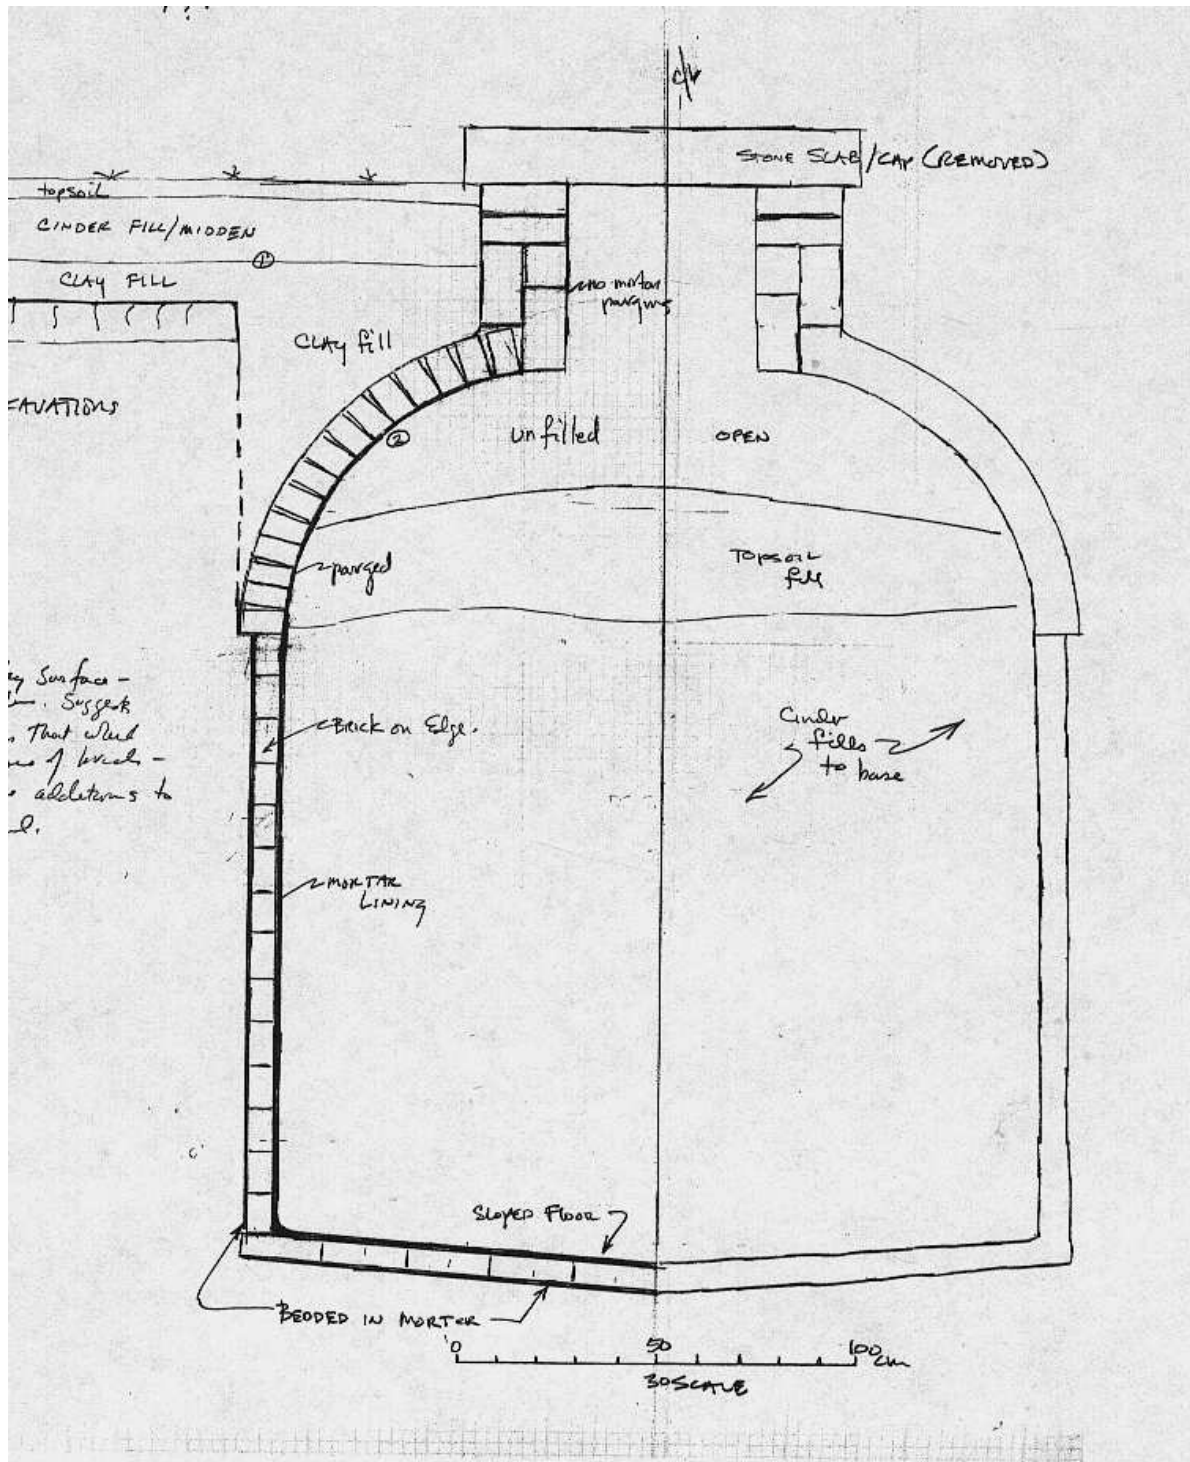 ???
STONE SLAB/CAP (REMOVED)
topsoil
CINDER FILL/MIDDEN
①
CLAY FILL
no mortar
parging
CLAY fill
AVATIONS
②
unfilled
OPEN
parged
TOPSOIL
fill
surface -
. Suggests
That
of
additions to
BRICK ON Edge.
Cinder
fills
to base
MORTAR
LINING
SLOPED FLOOR
BEDDED IN MORTER
0 50 100 cm
30 SCALE